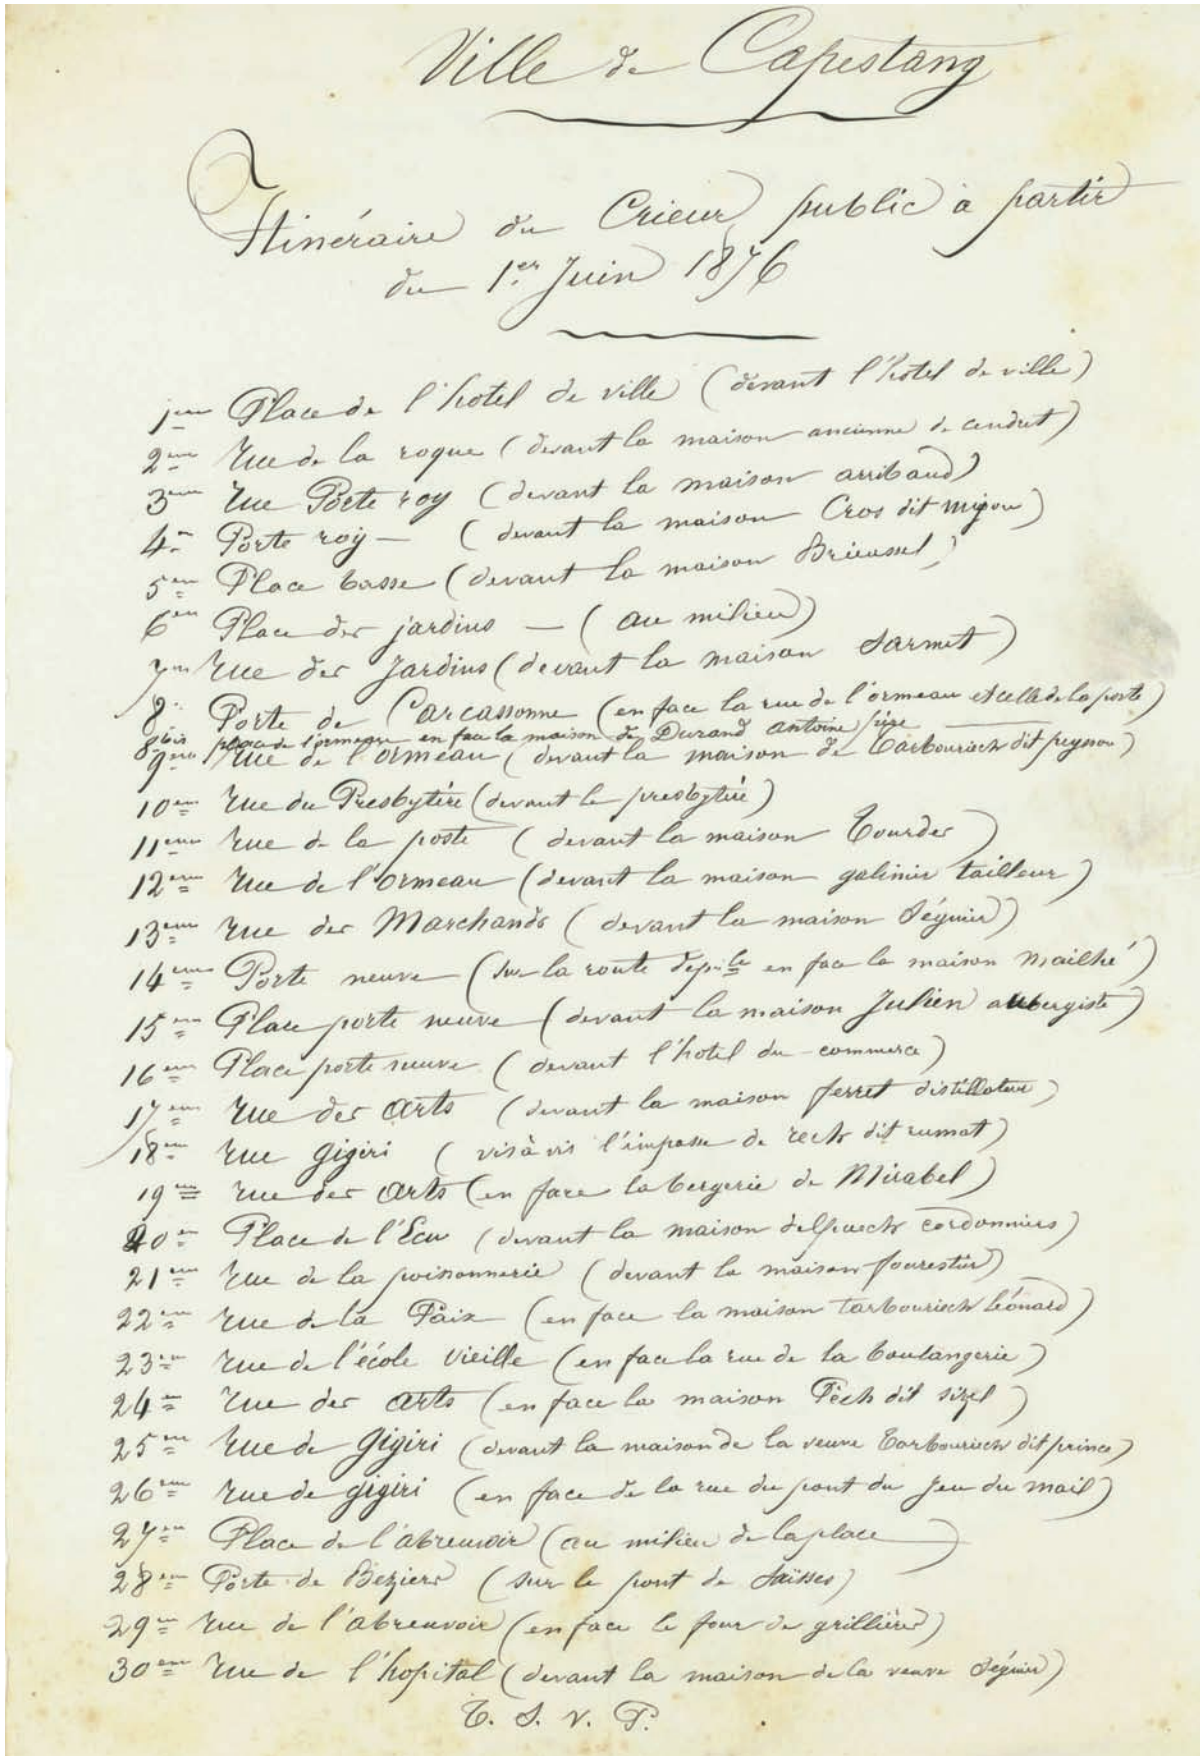 Ville de Capestang
Itinéraire du Crieur public à partir
du 1.er Juin 1876
1em Place de l'hotel de ville (devant l'hotel de ville)
2em Rue de la roque (devant la maison ancienne de cendret)
3em Rue Porte roy (devant la maison arribaud)
4e Porte roy — (devant la maison Cros dit mijou)
5em Place basse (devant la maison Brieussel)
6em Place des jardins — (au milieu)
7em Rue des Jardins (devant la maison Sarmet)
8e Porte de Carcassonne (en face la rue de l'ormeau et celle de la porte)
8bis place de l'ormeau en face la maison de Durand antoine père
9eme Rue de l'ormeau (devant la maison de Tarbouriech dit peyrou)
10em Rue du Presbytère (devant le presbytère)
11eme Rue de la poste (devant la maison Tourder)
12em Rue de l'ormeau (devant la maison galinier tailleur)
13eme Rue des Marchands (devant la maison Séguier)
14eme Porte neuve (sur la route dép.le en face la maison Mailhé)
15em Place porte neuve (devant la maison Julien aubergiste)
16em Place porte neuve (devant l'hotel du commerce)
17em Rue des arts (devant la maison ferret distillateur)
18em Rue gigiri (vis à vis l'impasse de rech dit rumat)
19em rue des arts (en face la bergerie de Mirabel)
20em Place de l'Ecu (devant la maison delpuech cordonniers)
21em Rue de la poissonnerie (devant la maison fourestier)
22em rue de la Paix (en face la maison tarbouriech léonard)
23em Rue de l'école vieille (en face la rue de la boulangerie)
24em Rue des arts (en face la maison Pèch dit sizel)
25em Rue de gigiri (devant la maison de la veuve Tarbouriech dit prince)
26em Rue de gigiri (en face de la rue du pont du jeu du mail)
27em Place de l'abreuvoir (au milieu de la place)
28em Porte de Beziers (sur le pont de Saïsses)
29em Rue de l'abreuvoir (en face le four de grillières)
30em Rue de l'hopital (devant la maison de la veuve Séguier)
T. S. V. P.